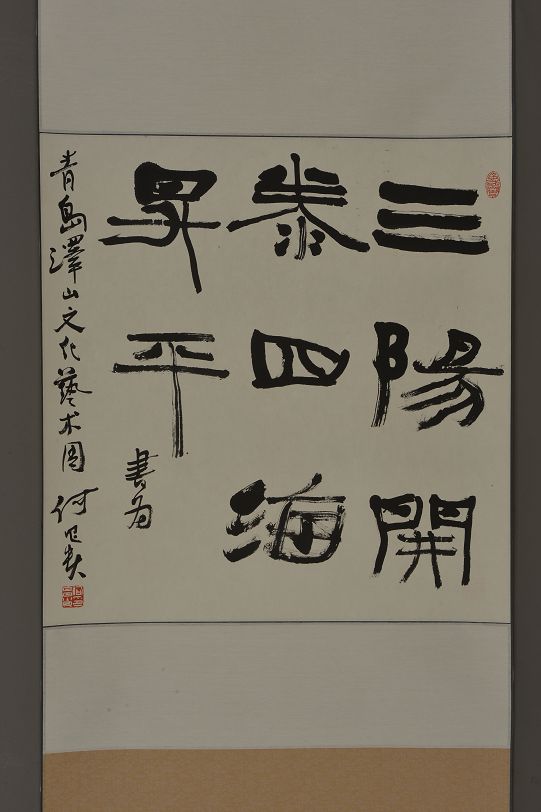 三陽開
泰四海
昇平書為
青島澤山文化藝术園何